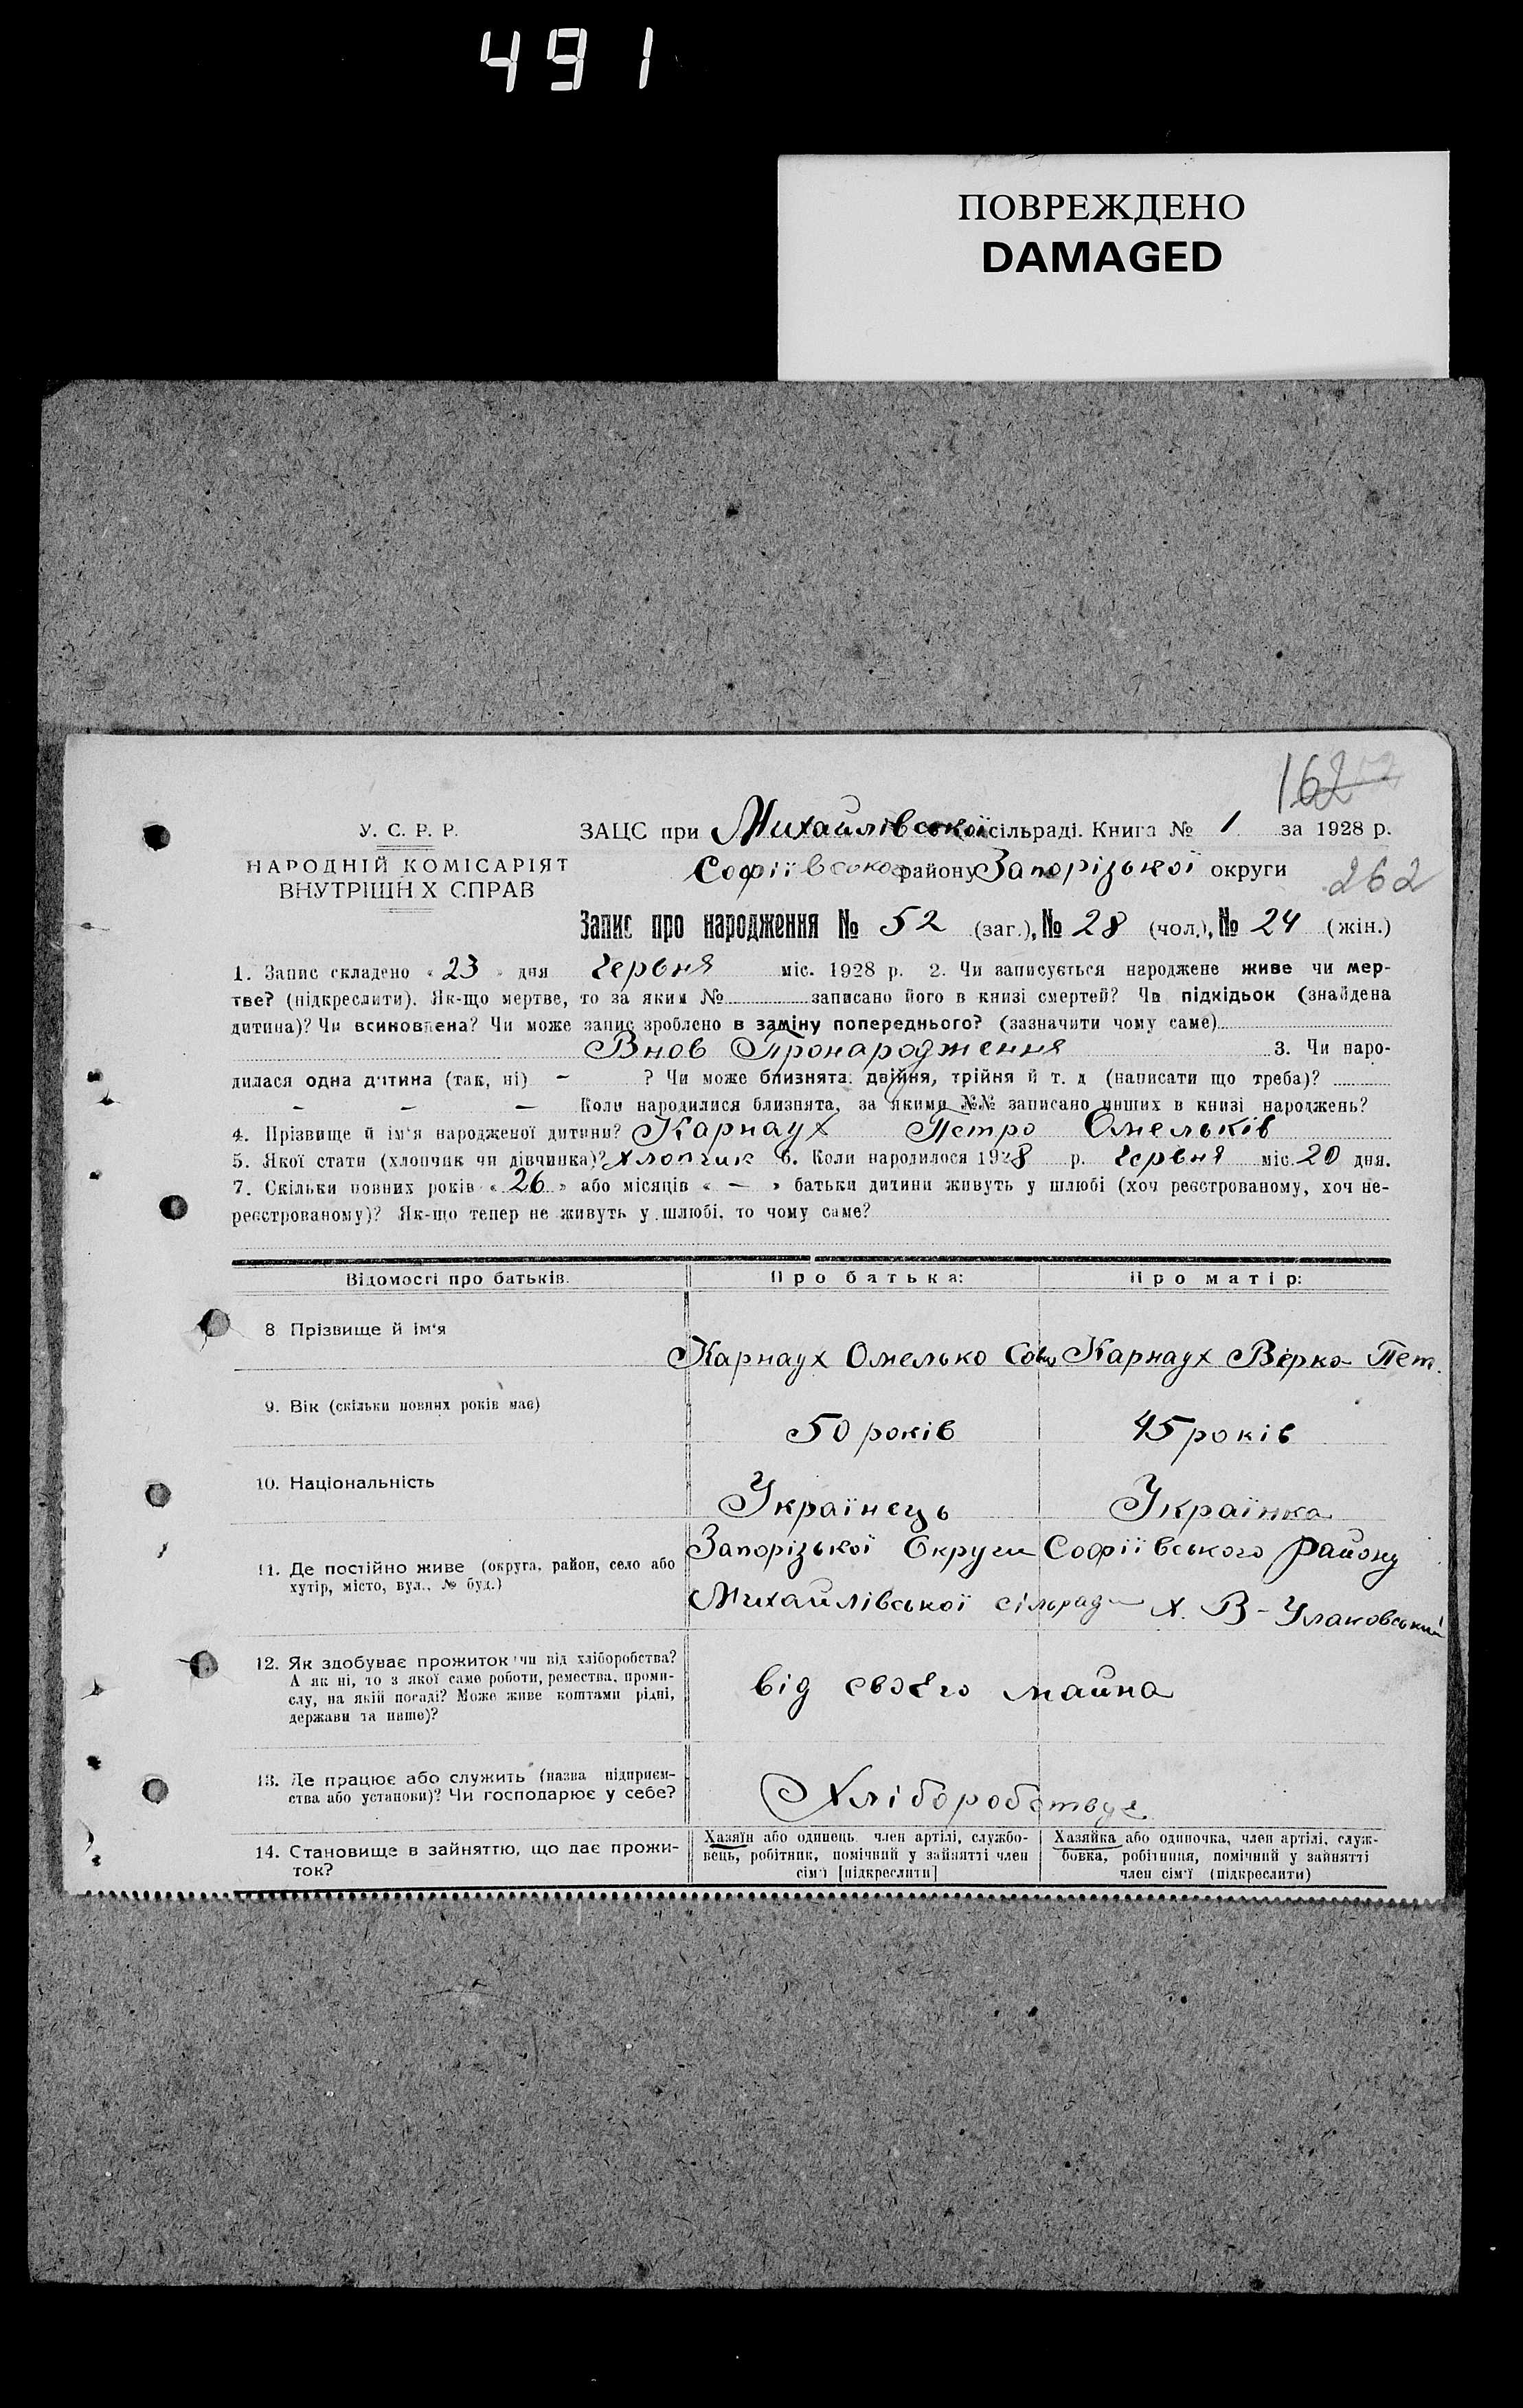 491
ПОВРЕЖДЕНО
DAMAGED
162
У. С. Р. Р.
НАРОДНІЙ КОМІСАРІЯТ
ВНУТРІШН Х СПРАВ
ЗАЦС при Михайлівської сільраді. Книга № 1 за 1928 р.
Софіївського району Запорізької округи
262
Запис про народження № 52 (заг.), № 28 (чол.), № 24 (жін.)
1. Запис складено « 23 » дня червня міс. 1928 р. 2. Чи записується народжене живе чи мер-
тве? (підкреслити). Як-що мертве, то за яким № записано його в книзі смертей? Чи підкідьок (знайдена
дитина)? Чи всиновлена? Чи може запис зроблено в заміну попереднього? (зазначити чому саме)
Внов Пронародження 3. Чи наро-
дилася одна дитина (так, ні) – ? Чи може близнята: двійня, трійня й т. д (написати що треба)?
– – – Коли народилися близнята, за якими №№ записано инших в книзі народжень?
4. Прізвище й ім'я народженої дитини? Карнаух Петро Омельків
5. Якої стати (хлопчик чи дівчинка)? хлопчик 6. Коли народилося 1928 р. червня міс. 20 дня.
7. Скільки повних років « 26 » або місяців « – » батьки дитини живуть у шлюбі (хоч реєстрованому, хоч не-
реєстрованому)? Як-що тепер не живуть у шлюбі, то чому саме?
Відомості про батьків.
Про батька:
Про матір:
8 Прізвище й ім'я
Карнаух Омелько
Карнаух Вірка Пет.
9. Вік (скільки повних років має)
50 років
45 років
10. Національність
Українець
Українка
11. Де постійно живе (округа, район, село або
хутір, місто, вул., № буд.)
Запорізької Округи Софіївського Району
Михайлівської сільради х. В-Улаковський
12. Як здобуває прожиток чи від хліборобства?
А як ні, то з якої саме роботи, ремества, проми-
слу, на якій посаді? Може живе коштами рідні,
держави та инше)?
від своєго майна
13. Де працює або служить (назва підприєм-
ства або установи)? Чи господарює у себе?
Хліборобствує
14. Становище в зайняттю, що дає прожи-
ток?
Хазяїн або одинець член артілі, службо-
вець, робітник, помічний у зайнятті член
сім'ї [підкреслити]
Хазяйка або одиночка, член артілі, служ-
бовка, робітниця, помічний у зайнятті
член сім'ї (підкреслити)